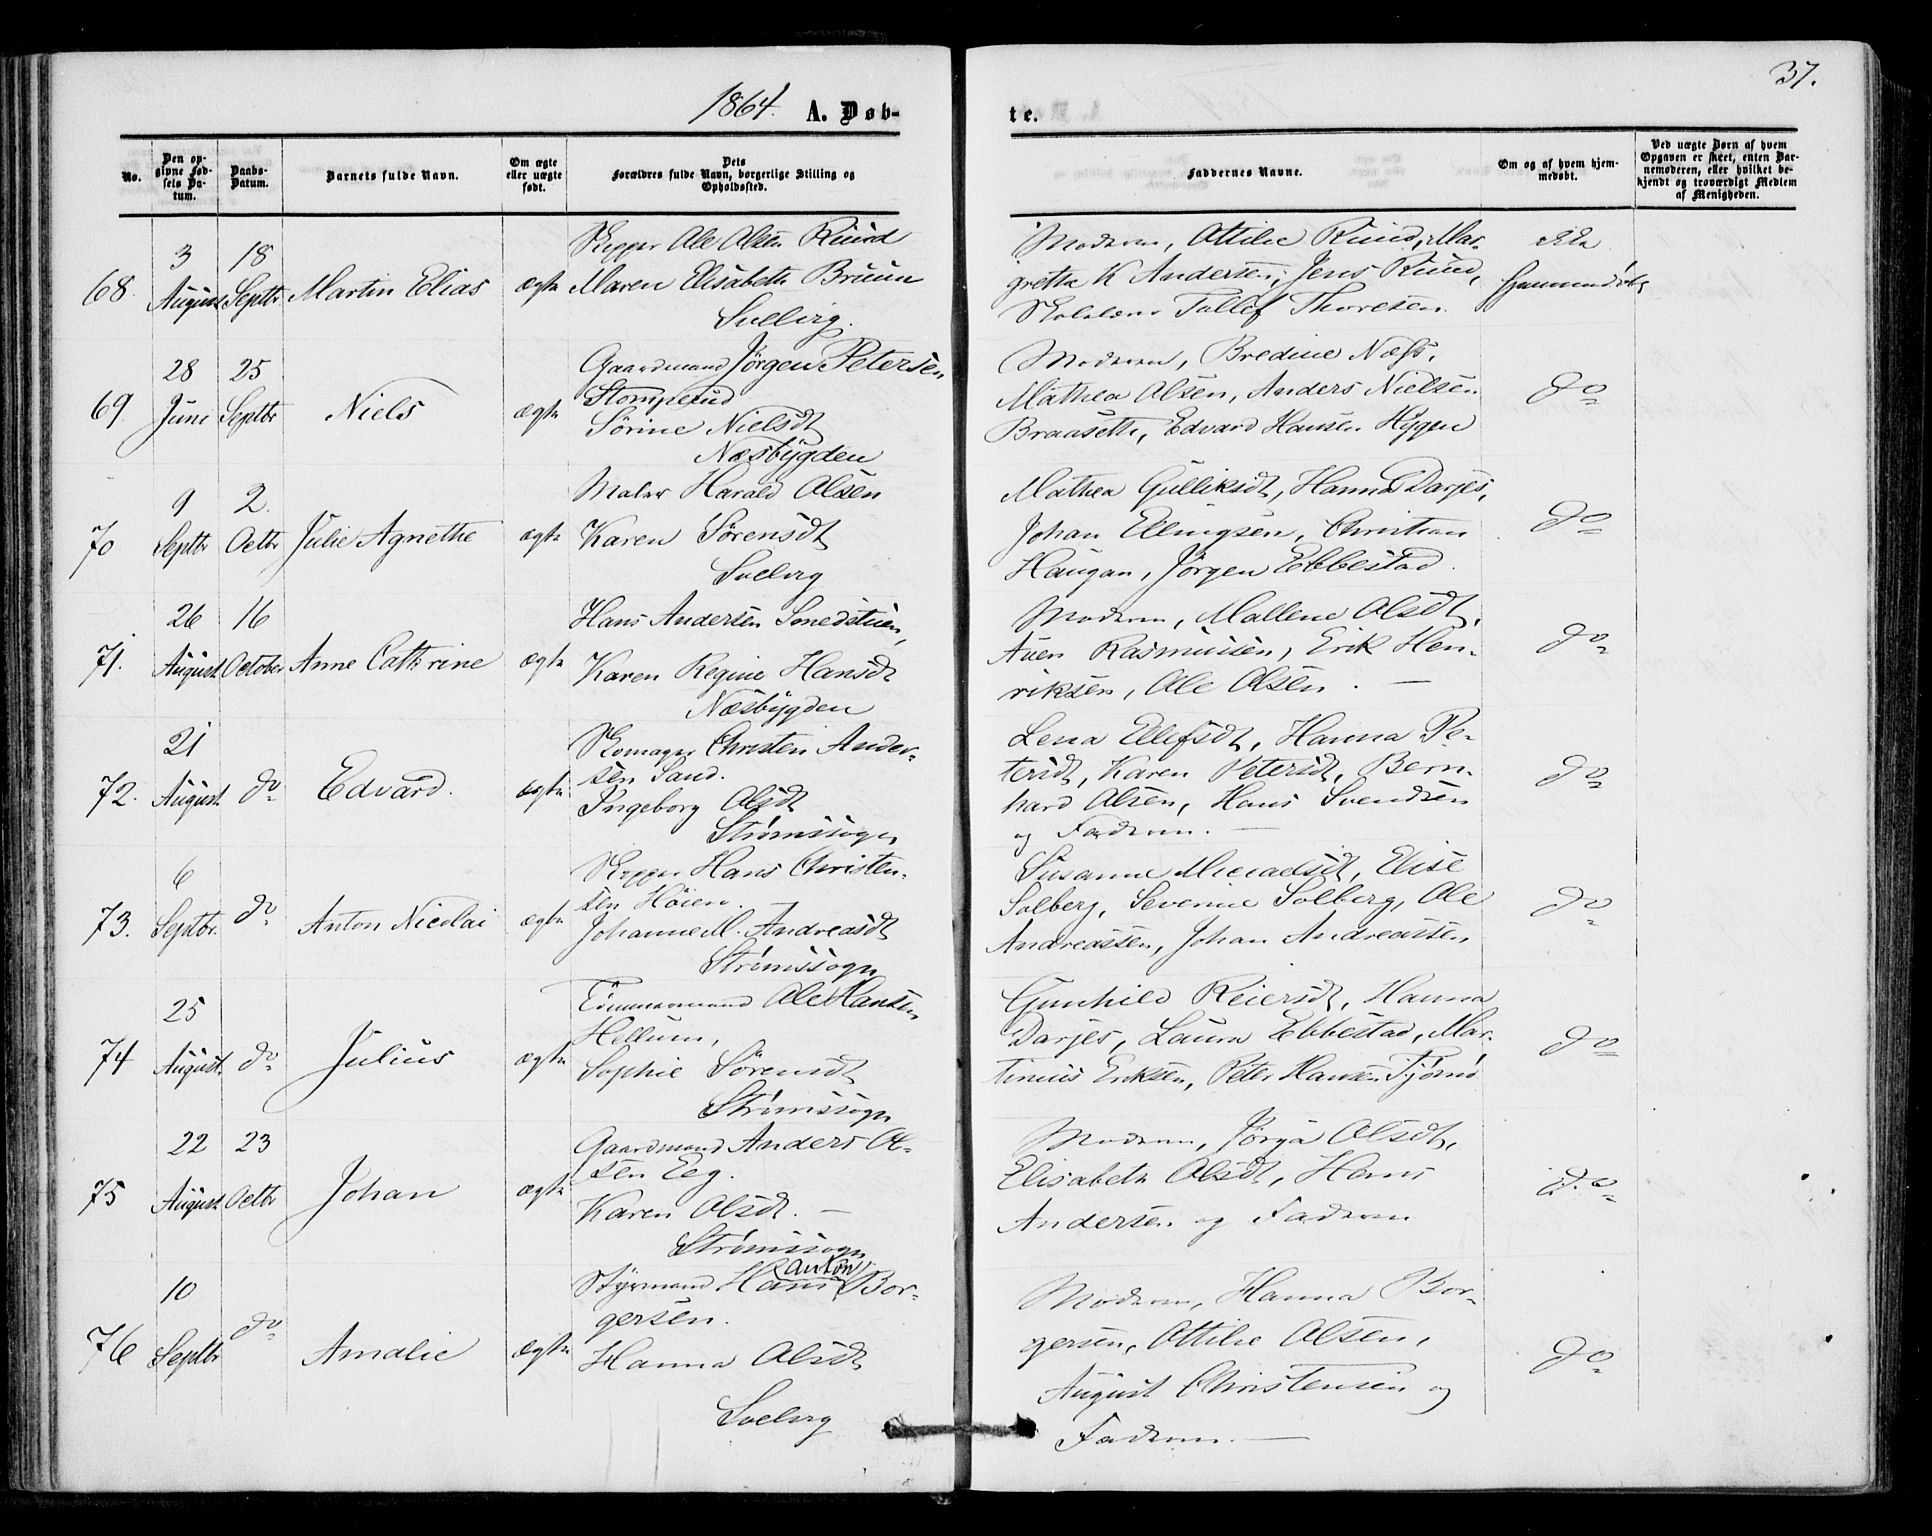 37.
1864. A. Døb- te.
No.
Den opgivne Fødsels Datum.
Daabs-Datum.
Barnets fulde Navn.
Om ægte eller uægte født.
Dets Forældres fulde Navn, borgerlige Stilling og Opholdssted.
Faddernes Navne.
Om og af hvem hjemmedøbt.
Ved uægte Børn af hvem Opgaven er skeet, enten Barnemoderen, eller hvilket bekjendt og troværdigt Medlem af Menigheden.
68. 3 August 18 Septbr Martin Elias ægte
Skipper Ole Olsen Ruud
Maren Elisabeth Bruun
Svelvig.
Moderen, Ottilie Ruud, Mar-
grethe K Andersen, Jens Ruud,
Skolelærer Tollef Thoresen.
Ikke
hjemmedøbt
69. 28 Juni 25 Septbr Niels ægte
Gaardmand Jørgen Petersen
Stomperud
Sørine Nielsdt
Næsbygden
Moderen, Bredine Næss,
Mathea Olsen, Anders Nielsen
Braaseth, Edvard Hansen Hygen
do
70 9 Septbr 2. Octbr Julie Agnethe ægte
Maler Harald Olsen
Karen Sørensdt
Svelvig
Mathea Gulliksdt, Hanna Darjes,
Johan Ellingsen, Christian
Haugan, Jørgen Ebbestad.
do
71. 26 August 16 October Anne Cathrine ægte
Hans Andersen Smedstuen,
Karen Regine Hansdt
Næsbygden
Moderen, Mallene Olsdt,
Auen Rasmussen, Erik Hen-
riksen, Ole Olsen. —
do
72. 21 August do Edvard. ægte
Skomager Christen Ander-
sen Sand.
Ingeborg Olsdt
Strømssogn
Lena Ellefsdt, Hanna Pe-
tersdt, Karen Petersdt, Bern-
hard Olsen, Hans Svendsen
og Faderen. —
do
73. 6 Septbr. do Anton Nicolai ægte
Skipper Hans Christen-
sen Høien. —
Johanne M. Andreasdt
Strømssogn
Susanne Michaelsdt, Elise
Solberg, Severine Solberg, Ole
Andreassen, Johan Andreassen
do
74 25 August do Julius ægte
Tømmermand Ole Hansen
Hellum,
Sophie Sørensdt
Strømssogn
Gunhild Reiersdt, Hanna
Darjes, Laura Ebbestad, Mar-
tinius Eriksen, Peter Hansen Tjømø
do
75 22 August 23 Octbr Johan ægte
Gaardmand Anders Ol-
sen Eeg.
Karen Olsdt. —
Strømssogn
Moderen, Jørgia Olsdt,
Elisabeth Olsdt, Hans
Andersen og Faderen
do
76 10 Septbr do Amalie ægte
Styrmand Hans Anton Bor-
gersen.
Hanna Olsdt
Svelvig
Moderen, Hanna Bor-
gersen, Ottilie Olsen,
August Christensen og
Faderen. —
do